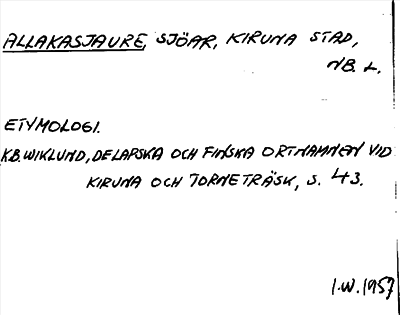 ALLAKASJAURE, SJÖAR, KIRUNA STAD,
NB. L.
ETYMOLOGI.
K.B. WIKLUND, DE LAPSKA OCH FINSKA ORTNAMNEN VID
KIRUNA OCH TORNETRÄSK, S. 43.
I.W. 1957